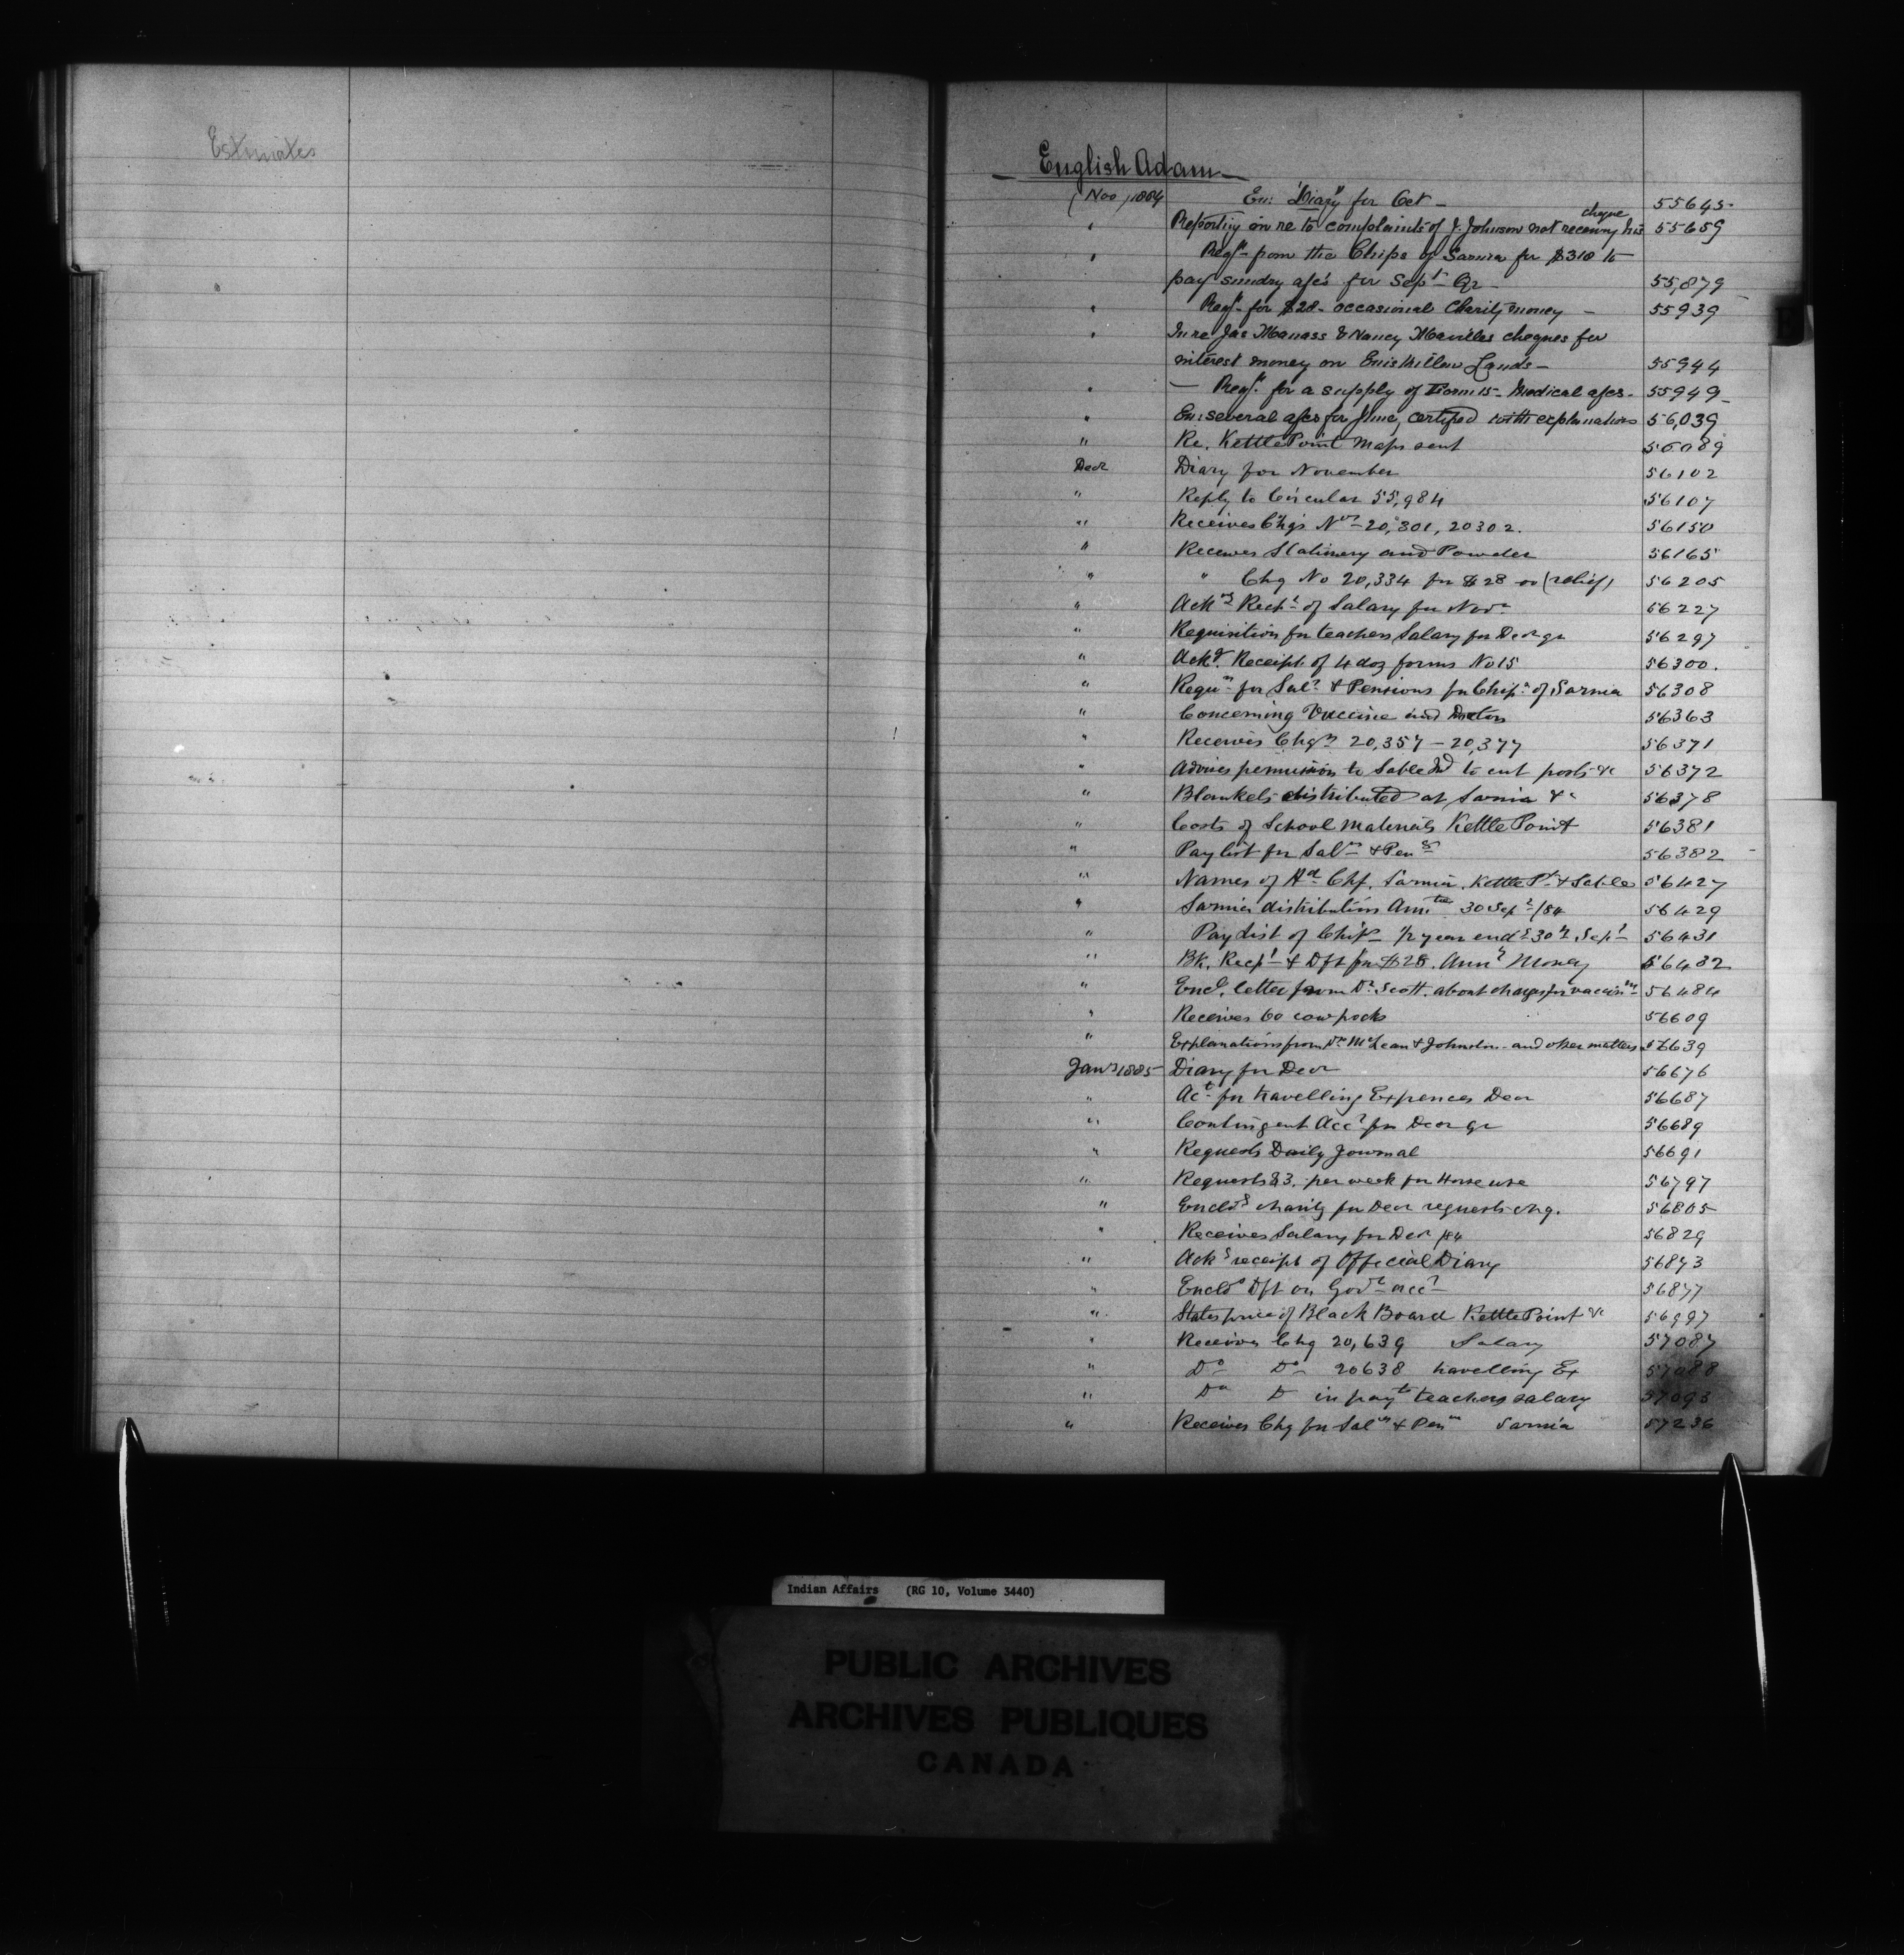 Estimates
English Adam
Nov 1884 En: "Diary" for Oct - 55645
" Reporting on re to complaints of J. Johnson not receiving his cheque 55659
" Reqn from the Chips of Sarnia for $310 to
pay sundry a/cs for Sept Qr - 55,879
" Reqn for $28- occasional Charity money - 55939
" In re Jas Manass & Nancy cheques for
interest money on Enniskillen Lands - 55944
" - Reqn for a supply of Form 15- Medical a/cs. 55949
" En: several a/cs for certified with explanations 56,039
" Re. Kettle Point Maps sent 56089
Decr Diary for November 56102
" Reply to Circular 55,984 56107
" Receives Chqs Nos 20,301, 20302. 56150
" Receives Stationery and Powder 56165
" " Chq No 20,334 for $28 00 (relief) 56205
" Ackgs Recpt of Salary for Novr 56227
" Requisition for teachers Salary for Decr qr 56297
" Ackg. Receipt of 4 doz forms No 15 56300.
" Requn for Sals & Pensions for Chips of Sarnia 56308
" Concerning Vaccine and Doctors 56363
" Receives Chqs 20,357 - 20,377 56371
" Advises permission to Sable Ind to cut posts &c 56372
" Blankets distributed at Sarnia &c 56378
" Costs of School Materials Kettle Point 56381
" Pay list for Sals & Pens 56382
" Names of Hd Chf. Sarnia, Kettle Pt & Sable 56427
" Sarnia distribution Annties 30 Sept /84 56429
" Pay List of Chips 1/2 year endg 30th Sept 56431
" Bk. Recpt & Dft for $28. Anny Money 56432
" Encl. letter from Dr. Scott. about charges for vaccing 56484
" Receives 60 cow pocks 56609
" Explanations from Drs McLean & Johnston and other matters 56639
Jany 1885 Diary for Decr 56676
" Act for travelling Expences Decr 56687
" Contingent Acct for Decr qr 56689
" Requests Daily Journal 56691
" Requests $3. per week for Horse use 56797
" Enclos charity for Decr requests chq. 56805
" Receives Salary for Decr /84 56829
" Ackgs receipt of Official Diary 56873
" Enclos Dft on Govt acct 56877
" States price of Black Board Kettle Point &c 56997
" Receives Chq 20,639 Salary 57087
" Do Do 20638 travelling Ex 57088
" Do D in payt teachers salary 57093
" Receives Chq for Sals & Pens Sarnia 57236
Indian Affairs (RG 10, Volume 3440)
PUBLIC ARCHIVES
ARCHIVES PUBLIQUES
CANADA